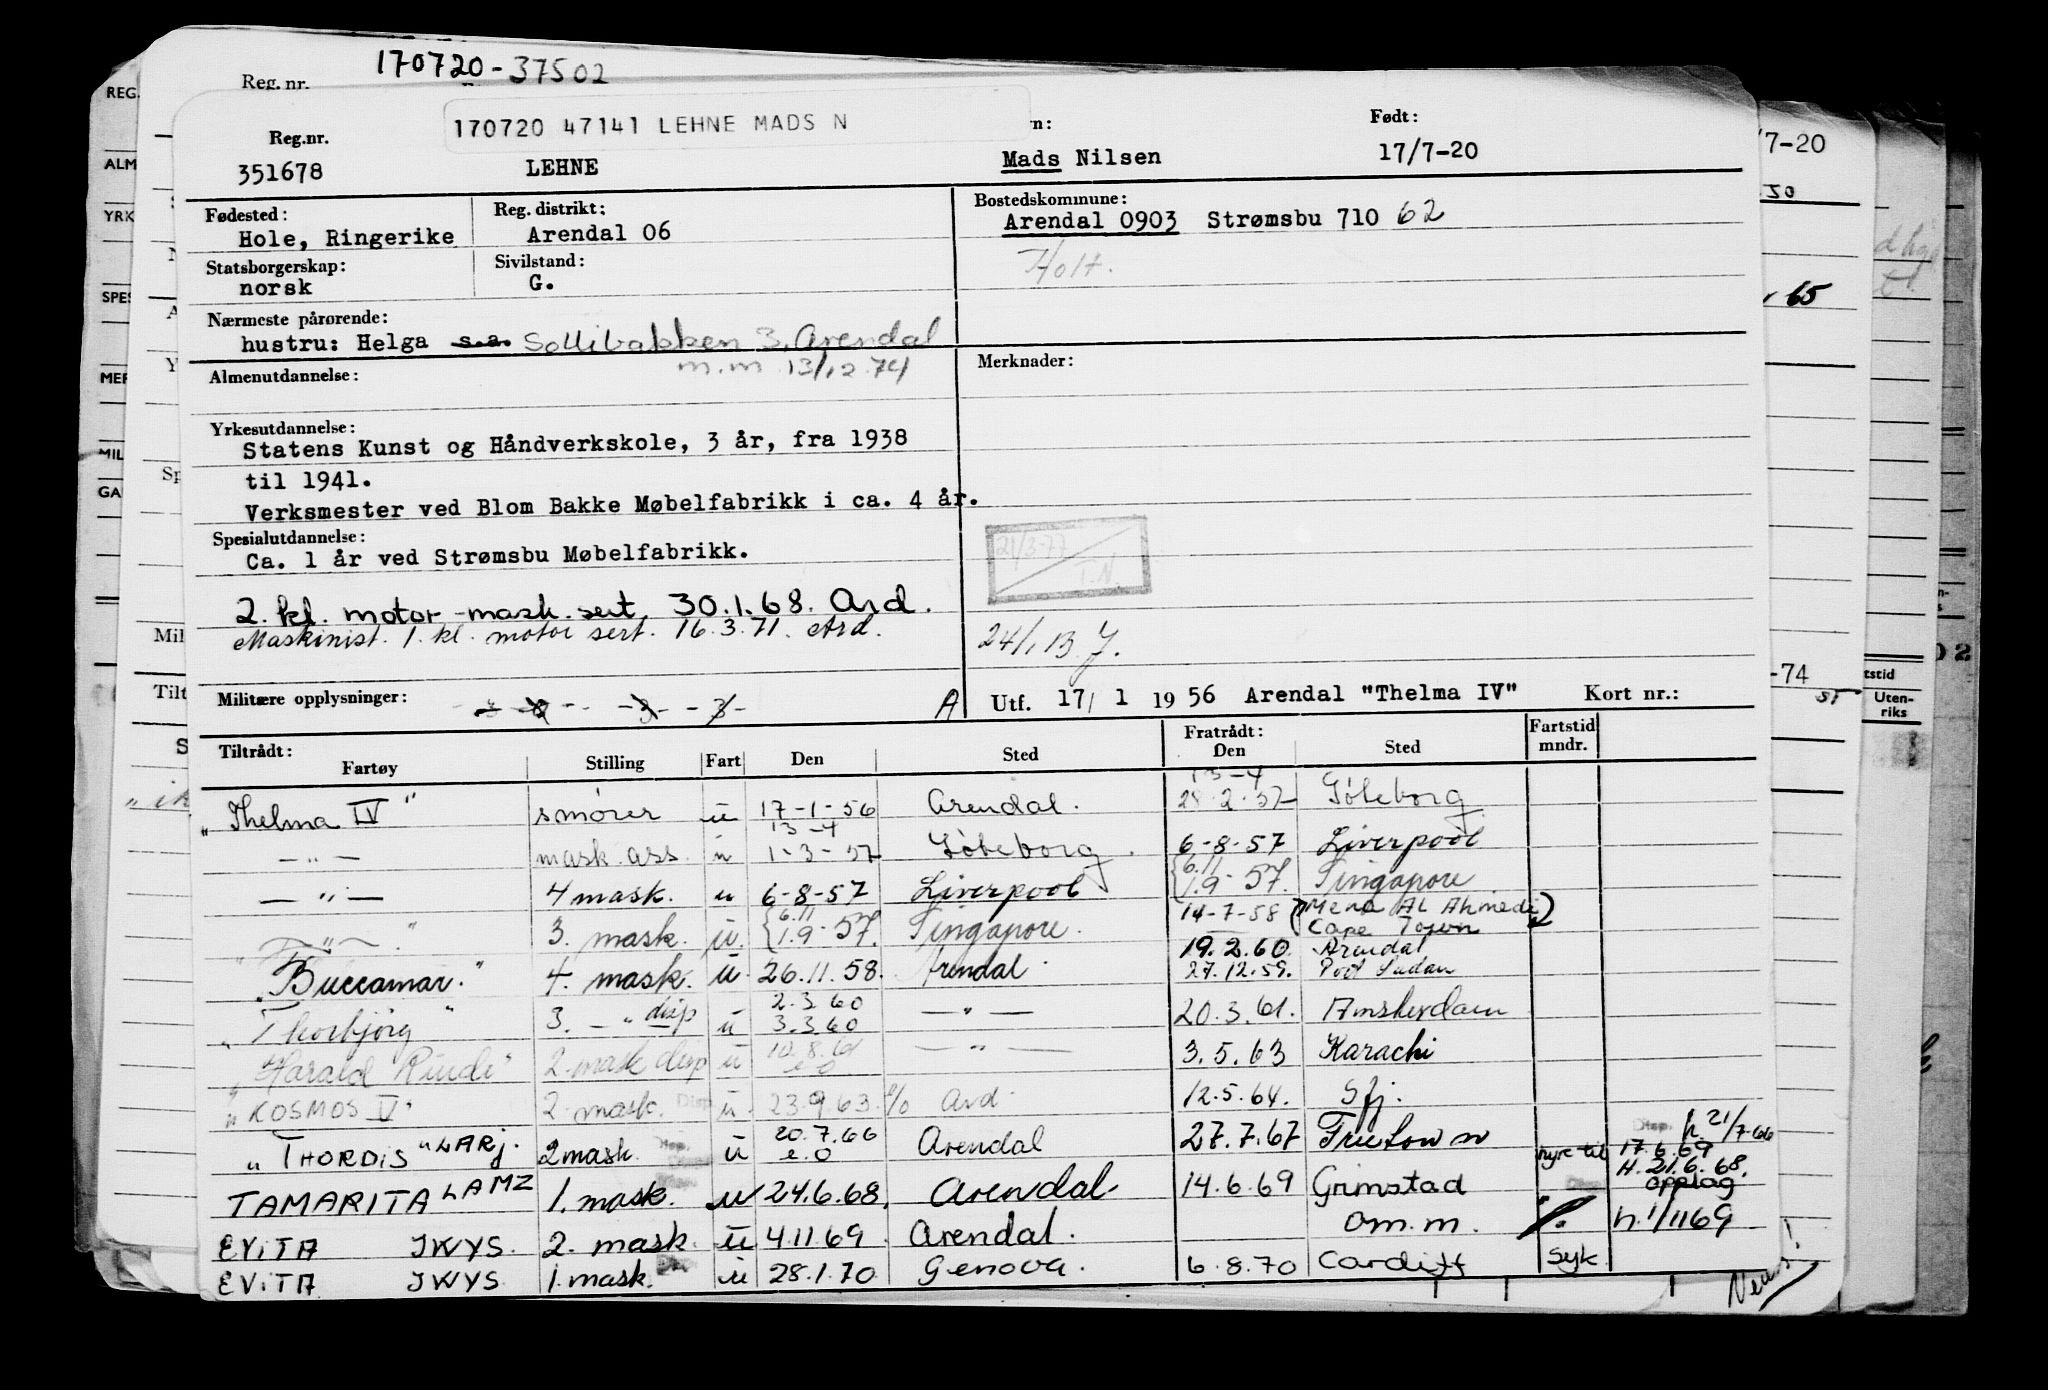 Reg. nr. 170720-37502
170720 47141 LEHNE MADS N
Reg.nr. n: Født:
351678 LEHNE Mads Nilsen 17/7-20
Fødested: Reg. distrikt: Bostedskommune:
Hole, Ringerike Arendal 06 Arendal 0903 Strømsbu 710 62
Statsborgerskap: Sivilstand: Holt.
norsk G.
Nærmeste pårørende:
hustru: Helga s.a. Sollibakken 3, Arendal
m.m 13/12 74
Almenutdannelse: Merknader:
Yrkesutdannelse:
Statens Kunst og Håndverkskole, 3 år, fra 1938
til 1941.
Verksmester ved Blom Bakke Møbelfabrikk i ca. 4 år.
Spesialutdannelse:
Ca. 1 år ved Strømsbu Møbelfabrikk.
21/3-77
T.N.
2. kl. motor-mask.sert. 30.1.68. Ard.
Maskinist. 1. kl. motor sert. 16.3.71. Ard.
24/1 13 J.
Militære opplysninger: A Utf. 17/ 1 19 56 Arendal "Thelma IV" Kort nr.:
Tiltrådt: Fratrådt: Fartstid
Fartøy Stilling Fart Den Sted Den Sted mndr.
13-4
"Thelma IV" smører u 17-1-56 Arendal. 28.2.57 Göteborg
13-4
—"— mask.ass. u 1-3-57 Göteborg. 6-8-57 Liverpool
6.11
—"— 4 mask. u 6-8-57 Liverpool 1.9-57. Singapore
6.11
—"— 3. mask. u. 1.9-57. Singapore. 14-7-58 (Mena Al Ahmedi)
Cape Town
19.2.60 Arendal
"Buccamar." 4. mask. u. 26.11.58. Arendal 27.12.59. Port Sudan
2.3.60
"Thorbjörg" 3. —"— disp u 3.3.60 —"— 20.3.61. Amsterdam
"Harald Rinde" 2. mask disp u 10.8.61 —"— 3.5.63 Karachi
e.o
"KOSMOS V" 2. mask. Disp u. 23.9.63. Ard. 12.5.64. Sfj.
20.7.66
"THORDIS" LARJ. 2mask. u e.o Arendal 27.7.67 Freetown Disp. h. 21/7-66
hyre til 17.6.69
H. 21.6.68.
TAMARITA LAMZ 1. mask. u 24.6.68. Arendal 14.6.69 Grimstad opplag
EVITA JWYS. 2. mask. u 4.11.69. Arendal. om.m. h. 1/1169
EVITA JWYS 1. mask. u 28.1.70 Genova. 6.8.70 Cardiff Syk
Vend!
REG.
ALM
YRK
SPES
MER
MIL
GA
Sp
Mil
Tilt
/7-20
50
65
-74
tstid
Uten-
riks
02